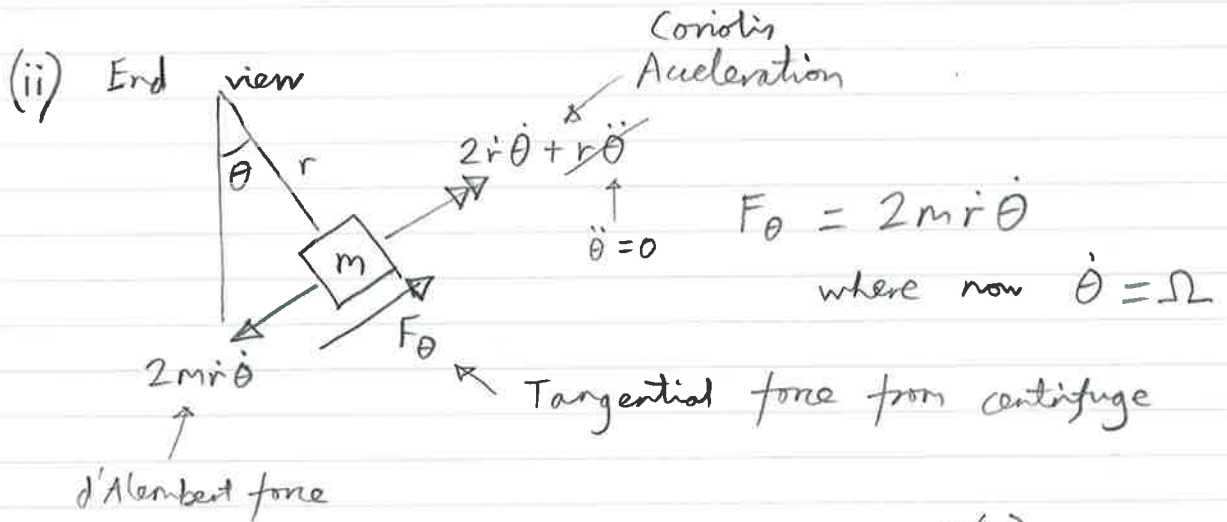 (ii) End view
Coriolis
Acceleration
θ
r
m
2ṙθ̇ + rθ̈
θ̈ = 0
F_θ = 2mṙθ̇
where now θ̇ = Ω
F_θ
2mṙθ̇
Tangential force from centrifuge
d'Alembert force